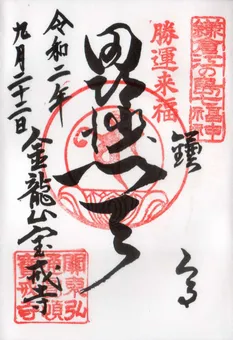 鎌倉江の島七福神
鎌倉
勝運来福
毘沙門天
令和二年
九月二十二日
金龍山宝戒寺